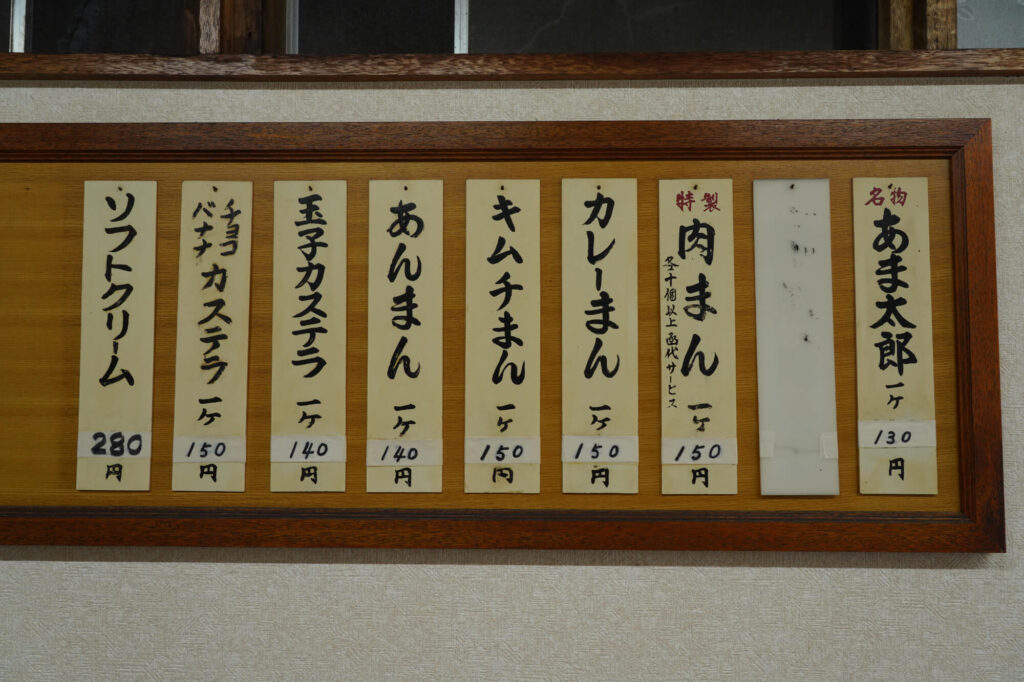 名物
あま太郎 一ケ
130
円
特製
肉まん 一ケ
各十個以上函代サービス
150
円
カレーまん 一ケ
150
円
キムチまん 一ケ
150
円
あんまん 一ケ
140
円
玉子カステラ 一ケ
140
円
チョコ
バナナ
カステラ 一ケ
150
円
ソフトクリーム
280
円